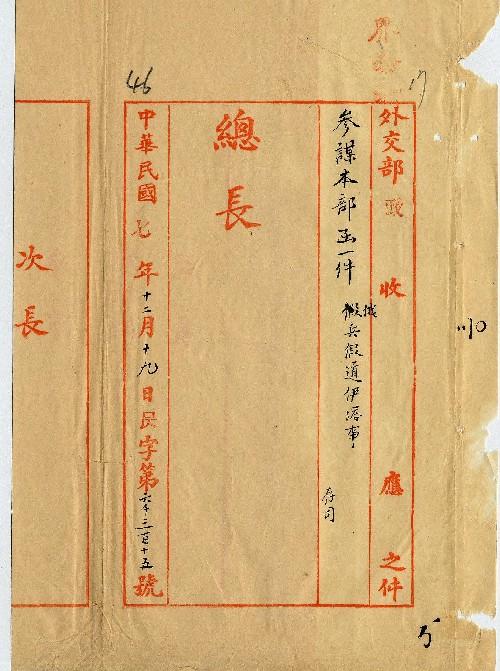 外交部 收 應 之件
參謀本部函一件
俄兵假道伊塔事
存司
總長
中華民國七年十二月十九日 字第六千三百十五號
46
17
次長